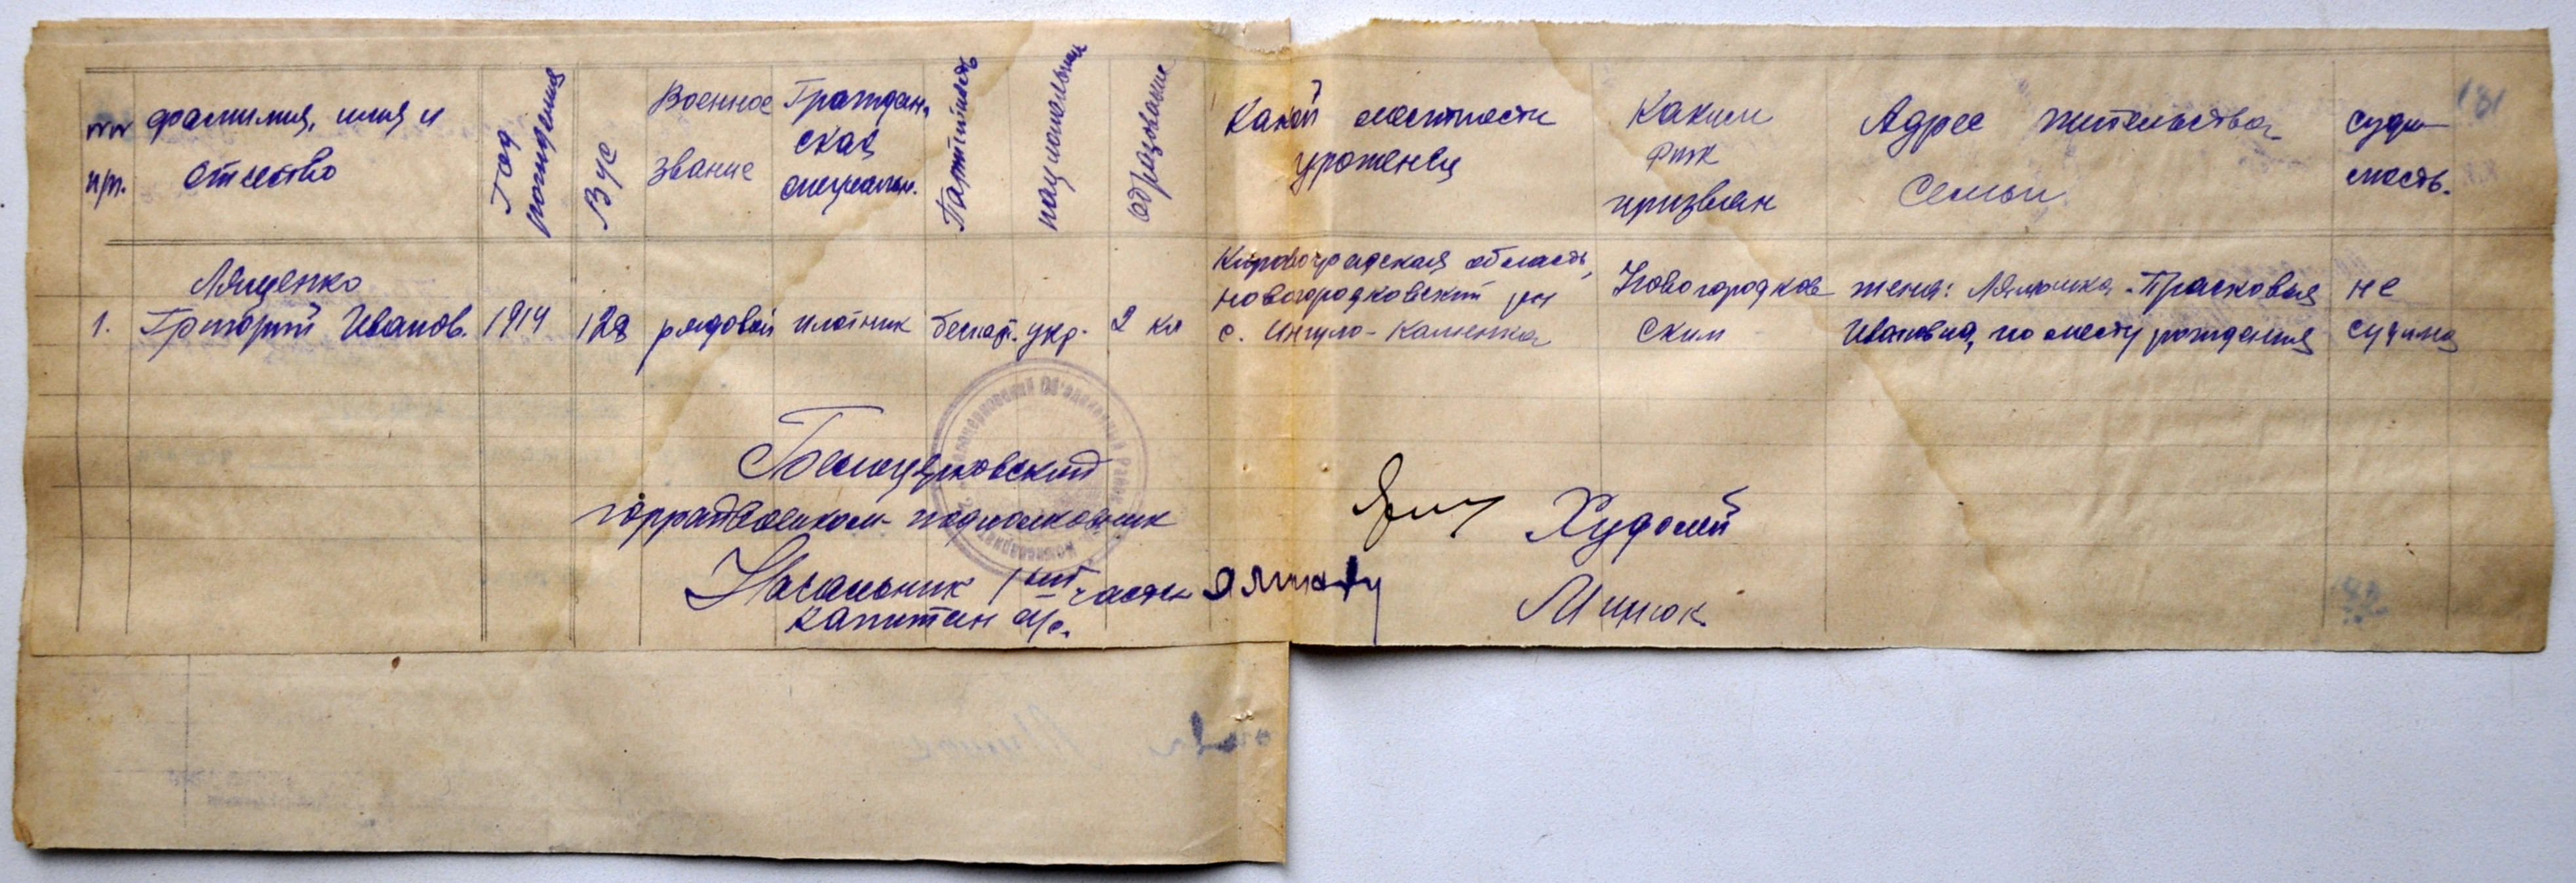 №№ п/п.
фамилия, имя и отчество
Год рождения
Вус
Военное звание
Граждан. ская специальн.
Партийность
национальность
образование
Какой местности уроженец
Каким рвк призван
Адрес жительства семьи
суди мость.
181
1.
Лященко
Григорий Иванов.
1914
128
рядовой
плотник
беспарт.
укр.
2 кл
Кировоградская область,
Новогородковский р-н
с. Ингуло-Каменка
Новогородков
ским
жена: Прасковья
Ивановна, по месту рождения
не
судима
Белоцерковский
горрайвоенком- подполковник
Худолей
Начальник 1ой части
капитан а/с.
Минюк.